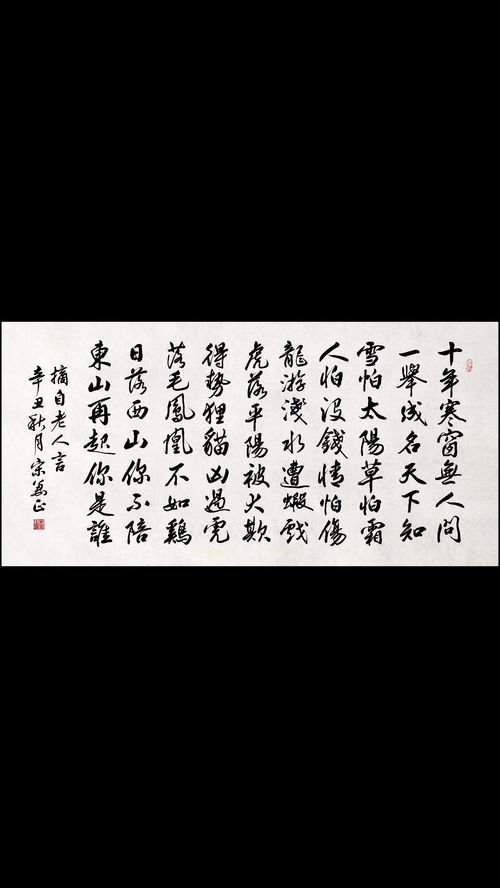 十年寒窗無人問
一舉成名天下知
雪怕太陽草怕霜
人怕沒錢情怕傷
龍游淺水遭蝦戲
虎落平陽被犬欺
得勢狸貓凶過虎
落毛鳳凰不如鷄
日落西山你不陪
東山再起你是誰
摘自老人言
辛丑秋月宗